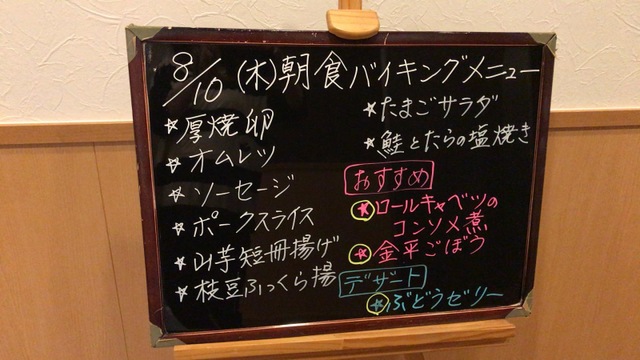 8/10(木)朝食バイキングメニュー
☆厚焼卵
☆オムレツ
☆ソーセージ
☆ポークスライス
☆山芋短冊揚げ
☆枝豆ふっくら揚
☆たまごサラダ
☆鮭とたらの塩焼き
おすすめ
☆ロールキャベツの
コンソメ煮
☆金平ごぼう
デザート
☆ぶどうゼリー